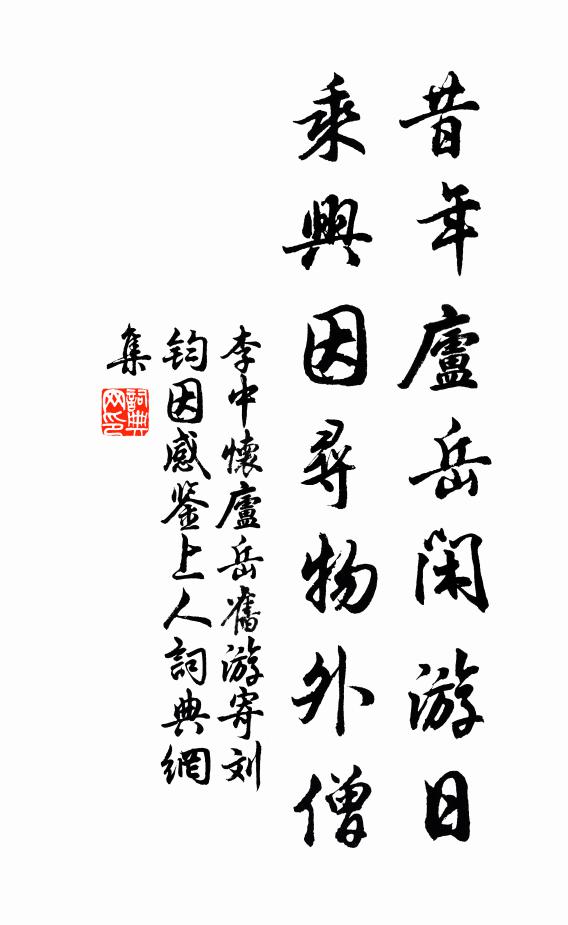 昔年廬岳閑游日
乘興因尋物外僧
李中懷廬岳舊游寄刘
钧因感鉴上人詞典網
集
詞典
网印